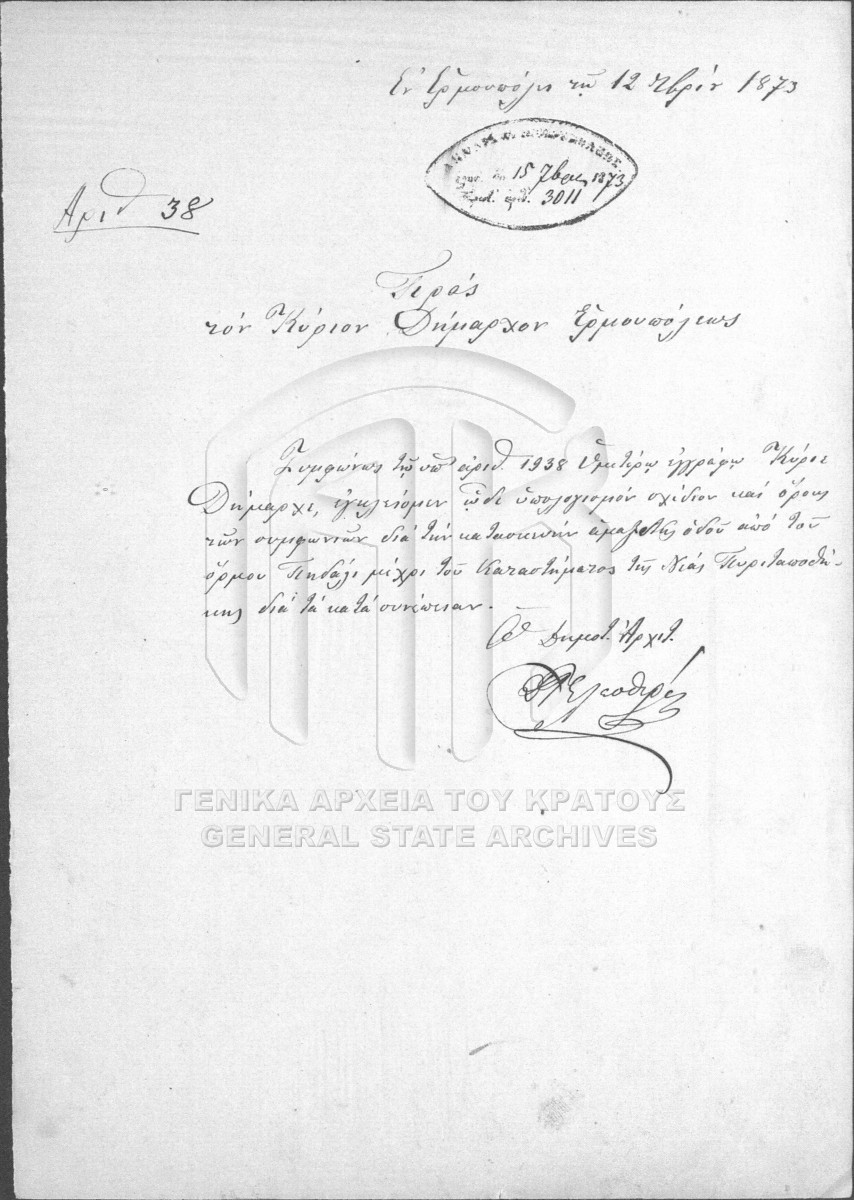 Ἐν Ἑρμουπόλει τῇ 12 7βρίου 1873
ΔΗΜΑΡΧ. ΕΡΜΟΥΠΟΛΕΩΣ
15 7βρίου 1873
ἀριθ. 3011
Ἀριθ 38
Πρὸς
τὸν Κύριον Δήμαρχον Ἑρμουπόλεως
Συμφώνως τῷ ὑπ' ἀριθ. 1938 Ὑμετέρῳ ἐγγράφῳ Κύριε
Δήμαρχε, ἐγκλείομεν ᾧδε ὑπολογισμόν σχέδιον καί ὅρους
των συμφωνιῶν διά τήν κατασκευήν ἁμαξιτῆς ὁδοῦ ἀπό τοῦ
ὅρμου Πηδάλι μέχρι τοῦ Καταστήματος τῆς Νέας Πυριταποθή-
κης διά τά κατά συνέπειαν.
Ὁ Δημοτ. Ἀρχιτ.
ΓΕΝΙΚΑ ΑΡΧΕΙΑ ΤΟΥ ΚΡΑΤΟΥΣ
GENERAL STATE ARCHIVES